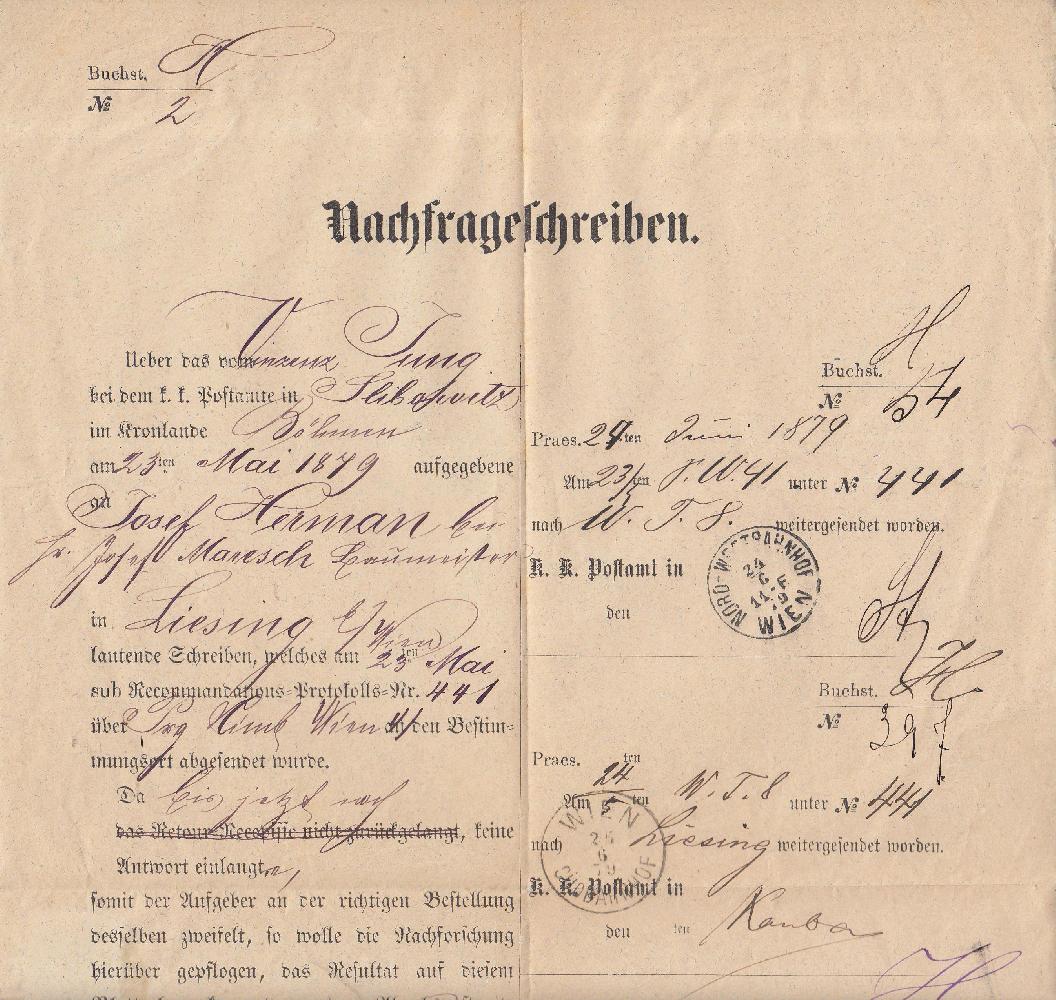 Buchst. H
№ 2
Nachfrageschreiben.
Ueber das vom Vinzenz Jung
bei dem k. k. Postamte in
im Kronlande Böhmen
am 23ten Mai 1879 aufgegebene
an Josef Herman bei
Hr. Josef Maresch Baumeister
in Liesing b/ Wien
lautende Schreiben, welches am 23ten Mai
sub Recommandations-Protokolls-Nr. 441
über Prg Wien 41 an den Bestim-
mungsort abgesendet wurde.
Da bis jetzt noch
das Retour-Recepisse nicht zurückgelangt, keine
Antwort einlangte,
somit der Aufgeber an der richtigen Bestellung
desselben zweifelt, so wolle die Nachforschung
hierüber gepflogen, das Resultat auf diesem
Buchst. H
№ 54
Praes. 24ten Juni 1879
Am 23/5ten P.W. 41 unter № 441
nach W. T. 8. weitergesendet worden.
K. K. Postamt in
den
NORD-WESTBAHNHOF WIEN
24
6
79
Buchst. H
№ 397
Praes. ten
Am 24/5 ten W. T. 8 unter № 441
nach Liesing weitergesendet worden.
K. K. Postamt in
den ten
WIEN SÜDBAHNHOF
6
79
H